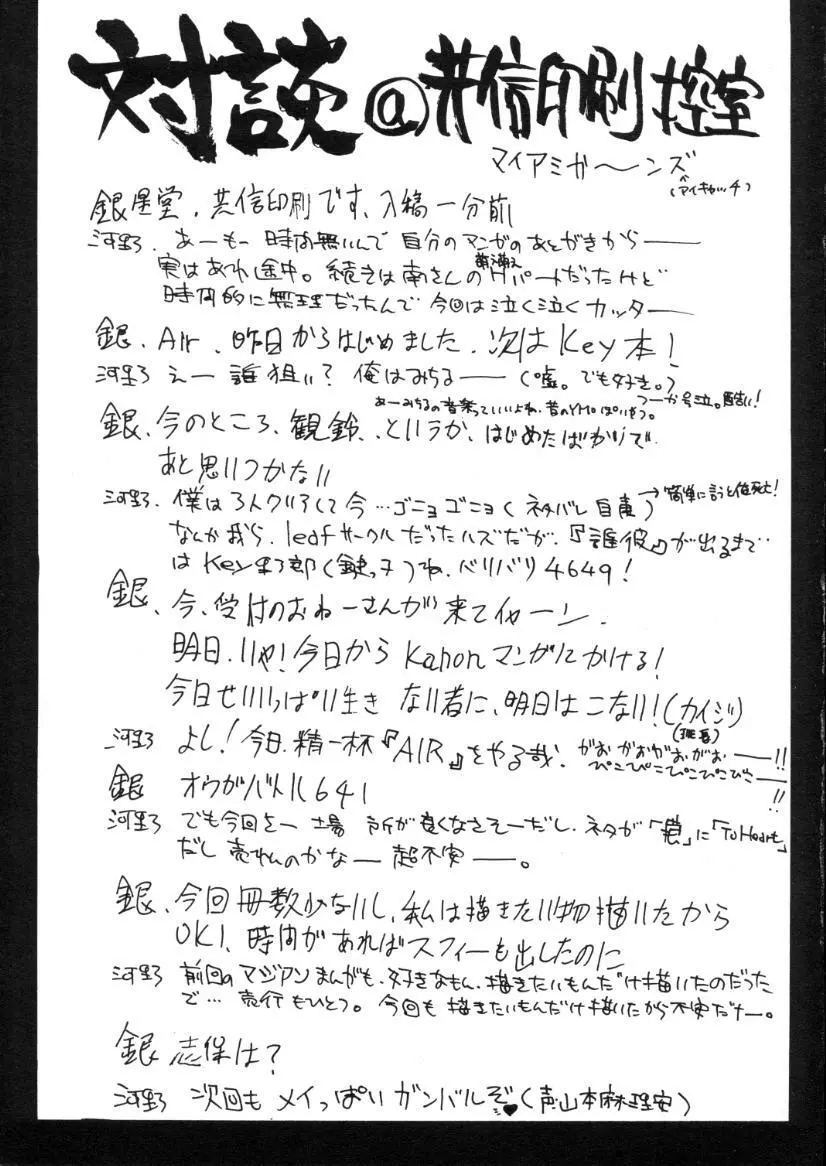 対談@共信印刷控室
マイアミガ〜ンズ
(アイキャッチ)
銀星堂、共信印刷です、入稿一分前
河野、あーもー時間無いんで自分のマンガのあとがきから——
実はあれ途中。続きは南さんの萌萌えHパートだったけど
時間的に無理だったんで今回は泣く泣くカッター
銀、Air、昨日からはじめました、次はKey本!
河野 えー誰狙い?俺はみちる——(嘘。でも好き。)
つーか号泣。酷い!
あーみちるの音楽っていいよね、昔のYMOっぽいよう。
銀、今のところ、観鈴、、というか、はじめたばかりで
あと思いつかない
河野、僕は3人クリアして今…ゴニョゴニョ(ネタバレ自粛)→簡単に言うと俺死亡!
なんか我ら、leafサークルだったハズだが、『誰彼』が出るまで
はKey野郎(鍵っ子)ね、ベリバリ4649!
銀、今、受付のおねーさんが来てイヤーン、
明日、いや!今日からKanonマンガにかける!
今日せいいっぱい生きない者に、明日はこない!(カイジ)
(班長)
河野 よし!今日、精一杯『AIR』をやる哉、がおがおがおがお——!!
ぴこぴこぴこぴこぴこ——!!
銀 オウガバトル641
河野 でも今回さー 場所が良くなさそーだし、ネタが「誰」に「ToHeart」
だし売れんのかなー超不安——。
銀、今回冊数少ないし、私は描きたい物描いたから
OK!、時間があればスフィーも出したのに
河野 前回のマジアンまんがも、好きなもん、描きたいもんだけ描いたのだった
で…売行もひとつ。今回も描きたいもんだけ描いたから不安だなー。
銀 志保は?
河野 次回もメイっぱいガンバルぞ♥(声山本麻里安)